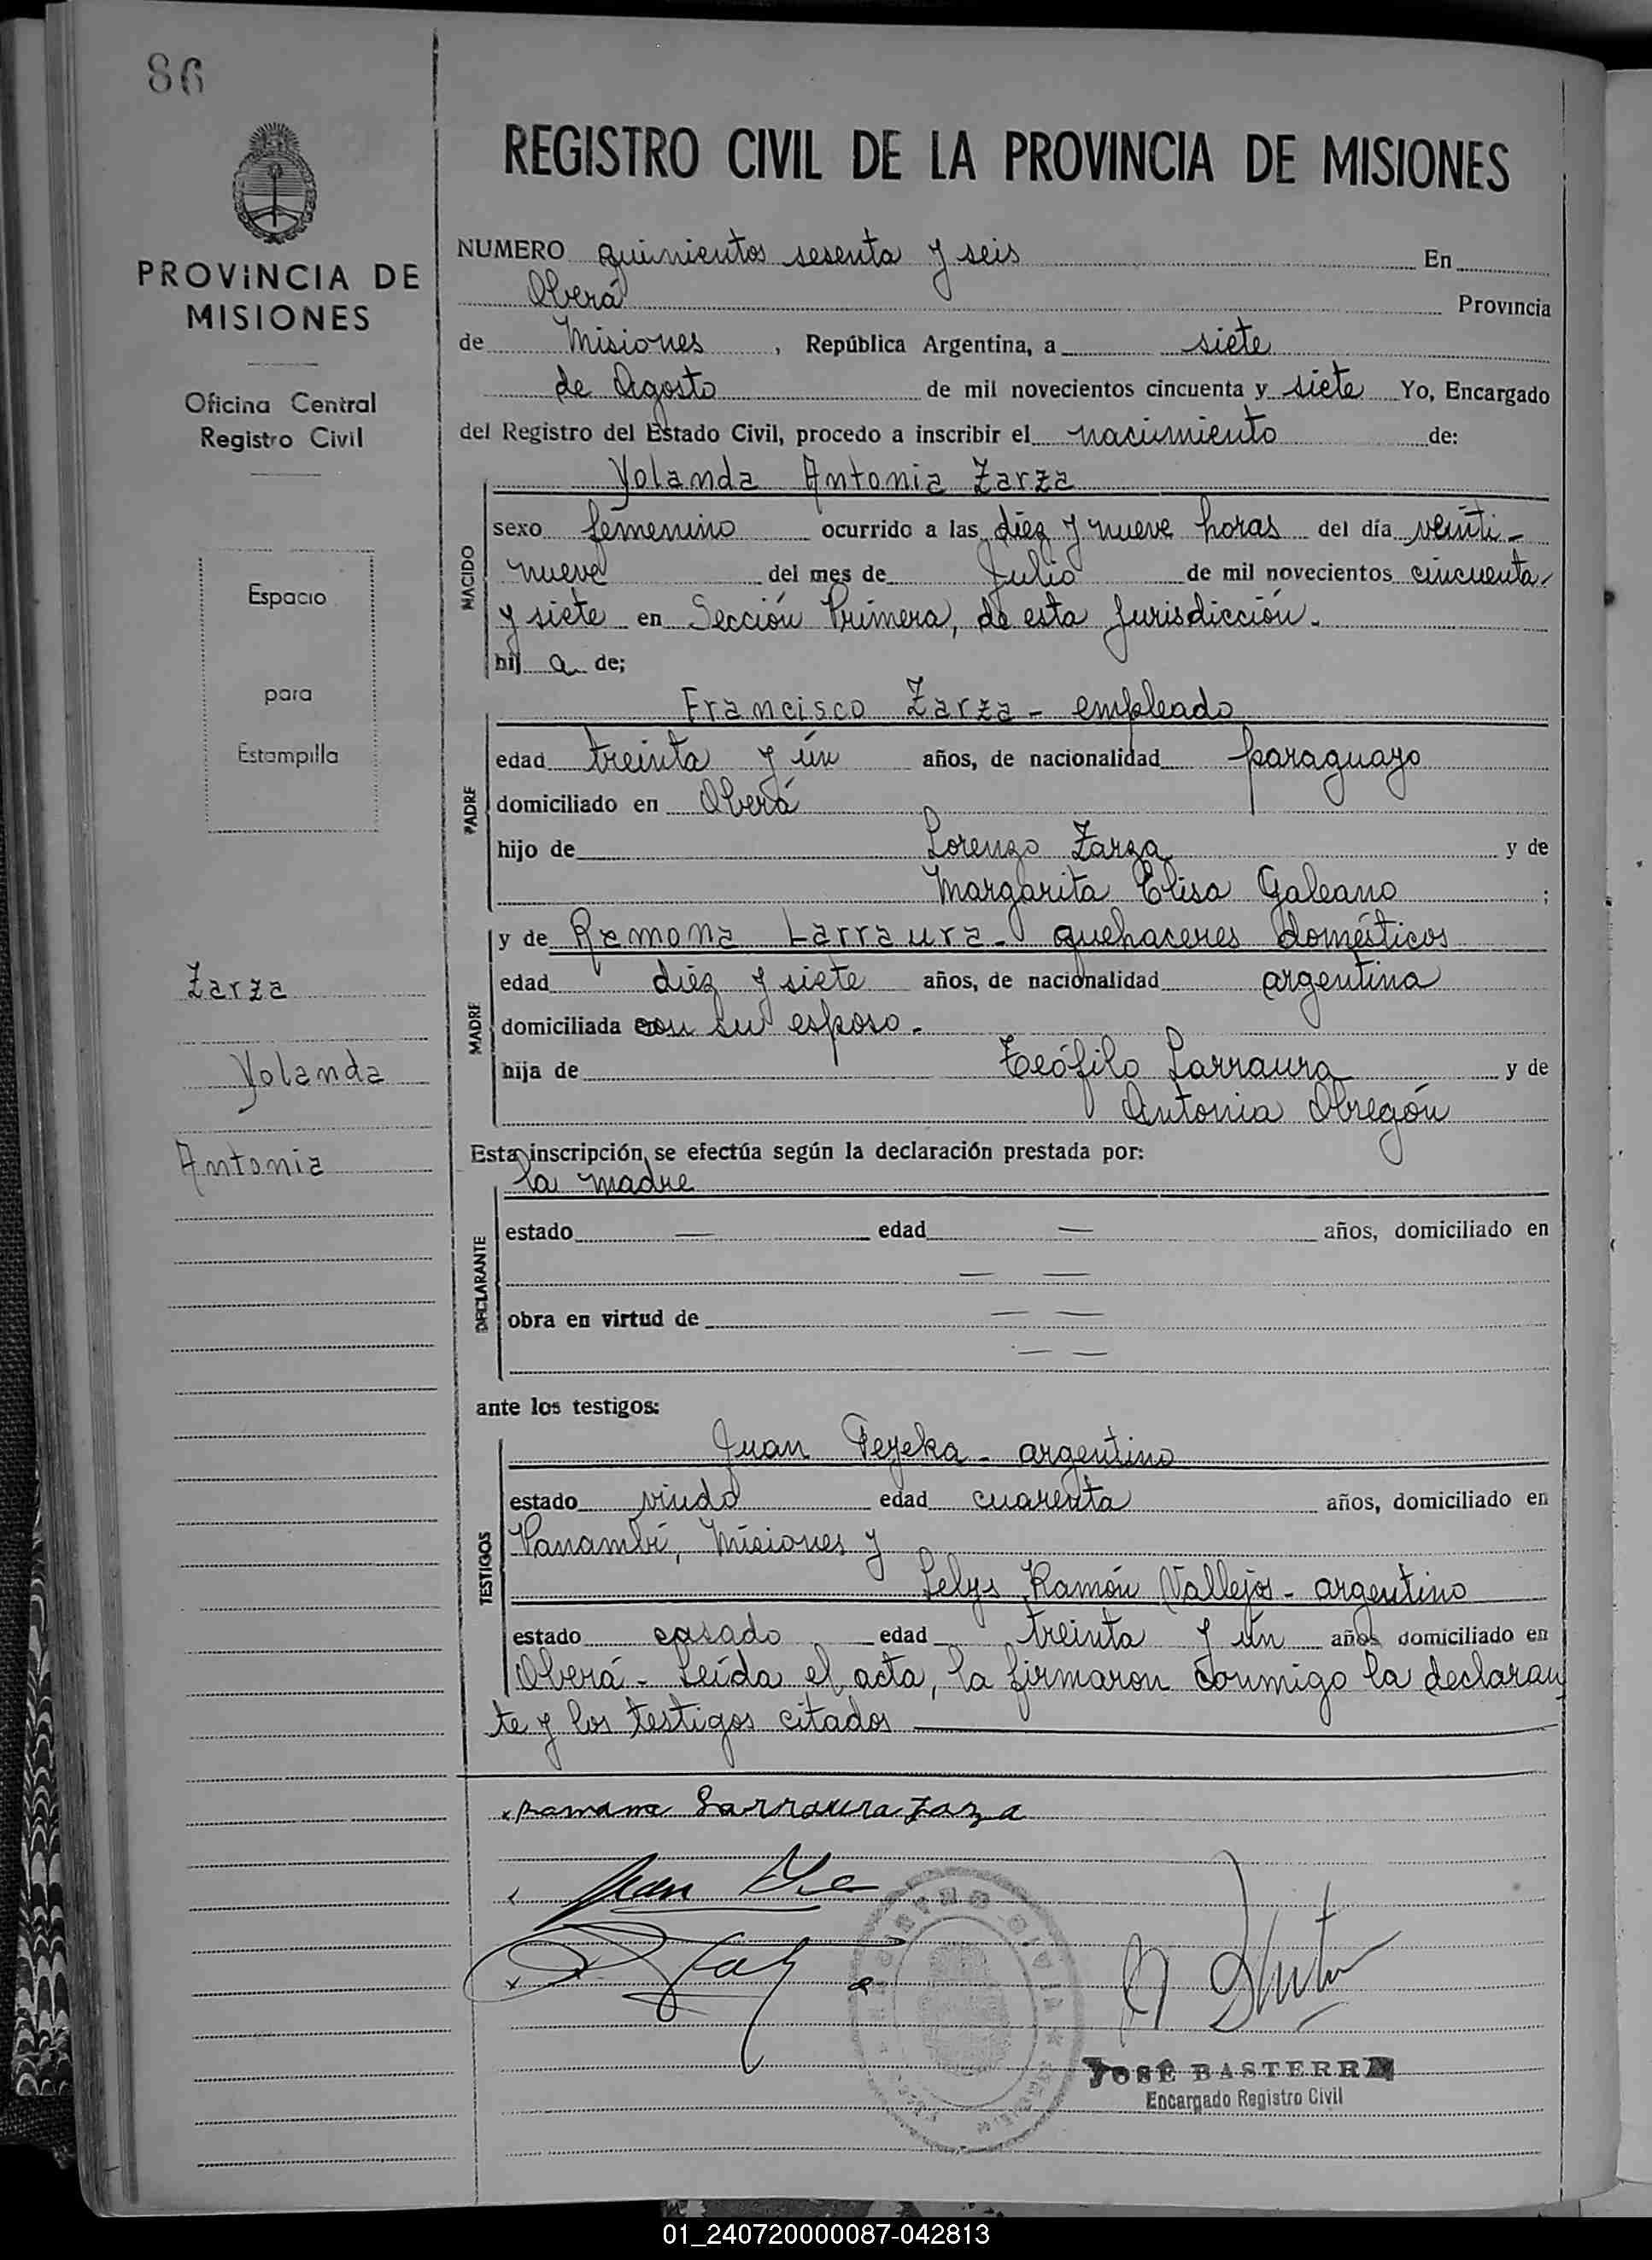 86
REGISTRO CIVIL DE LA PROVINCIA DE MISIONES
PROVINCIA DE
MISIONES
Oficina Central
Registro Civil
Espacio
para
Estampilla
Zarza
Yolanda
Antonia
NUMERO quinientos sesenta y seis En
Oberá Provincia
de Misiones, República Argentina, a siete
de Agosto de mil novecientos cincuenta y siete Yo, Encargado
del Registro del Estado Civil, procedo a inscribir el nacimiento de:
Yolanda Antonia Zarza
NACIDO
sexo femenino ocurrido a las diez y nueve horas del día veinti-
nueve del mes de Julio de mil novecientos cincuenta
y siete en Sección Primera, de esta Jurisdicción.
hij a de;
Francisco Zarza - empleado
PADRE
edad treinta y un años, de nacionalidad paraguayo
domiciliado en Oberá
hijo de Lorenzo Zarza y de
Margarita Elisa Galeano ;
y de Ramona Larraura - quehaceres domésticos
MADRE
edad diez y siete años, de nacionalidad argentina
domiciliada con su esposo.
hija de Teófilo Larraura y de
Antonia Obregón
Esta inscripción se efectúa según la declaración prestada por:
la madre
DECLARANTE
estado — edad — años, domiciliado en
— —
obra en virtud de — —
— —
ante los testigos:
Juan Peyeka - argentino
TESTIGOS
estado viudo edad cuarenta años, domiciliado en
Panambí, Misiones y
Lelys Ramón Vallejos - argentino
estado casado edad treinta y un años domiciliado en
Oberá - Leída el acta, la firmaron conmigo la declaran
te y los testigos citados
x Ramona Larraura Zaza
Juan
JOSÉ BASTERRA
Encargado Registro Civil
01_240720000087-042813